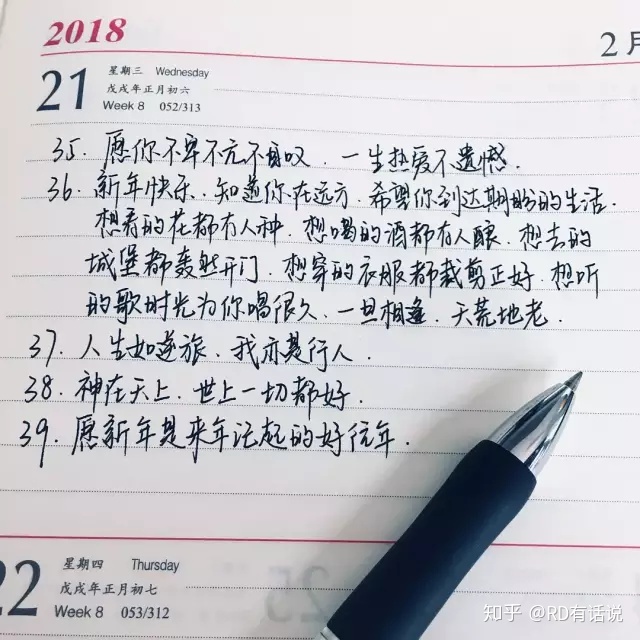 2018
2月
21 星期三 Wednesday
戊戌年正月初六
Week 8 052/313
35. 愿你不卑不亢不自叹、一生热爱不遗憾.
36. 新年快乐、知道你在远方、希望你到达期盼的生活.
想看的花都有人种、想喝的酒都有人酿、想去的
城堡都轰然开门、想穿的衣服都裁剪正好、想听
的歌时光为你唱很久、一旦相逢、天荒地老.
37. 人生如逆旅、我亦是行人.
38. 神在天上、世上一切都好.
39. 愿新年是来年记起的好往年.
22 星期四 Thursday
戊戌年正月初七
Week 8 053/312
知乎 @RD有话说